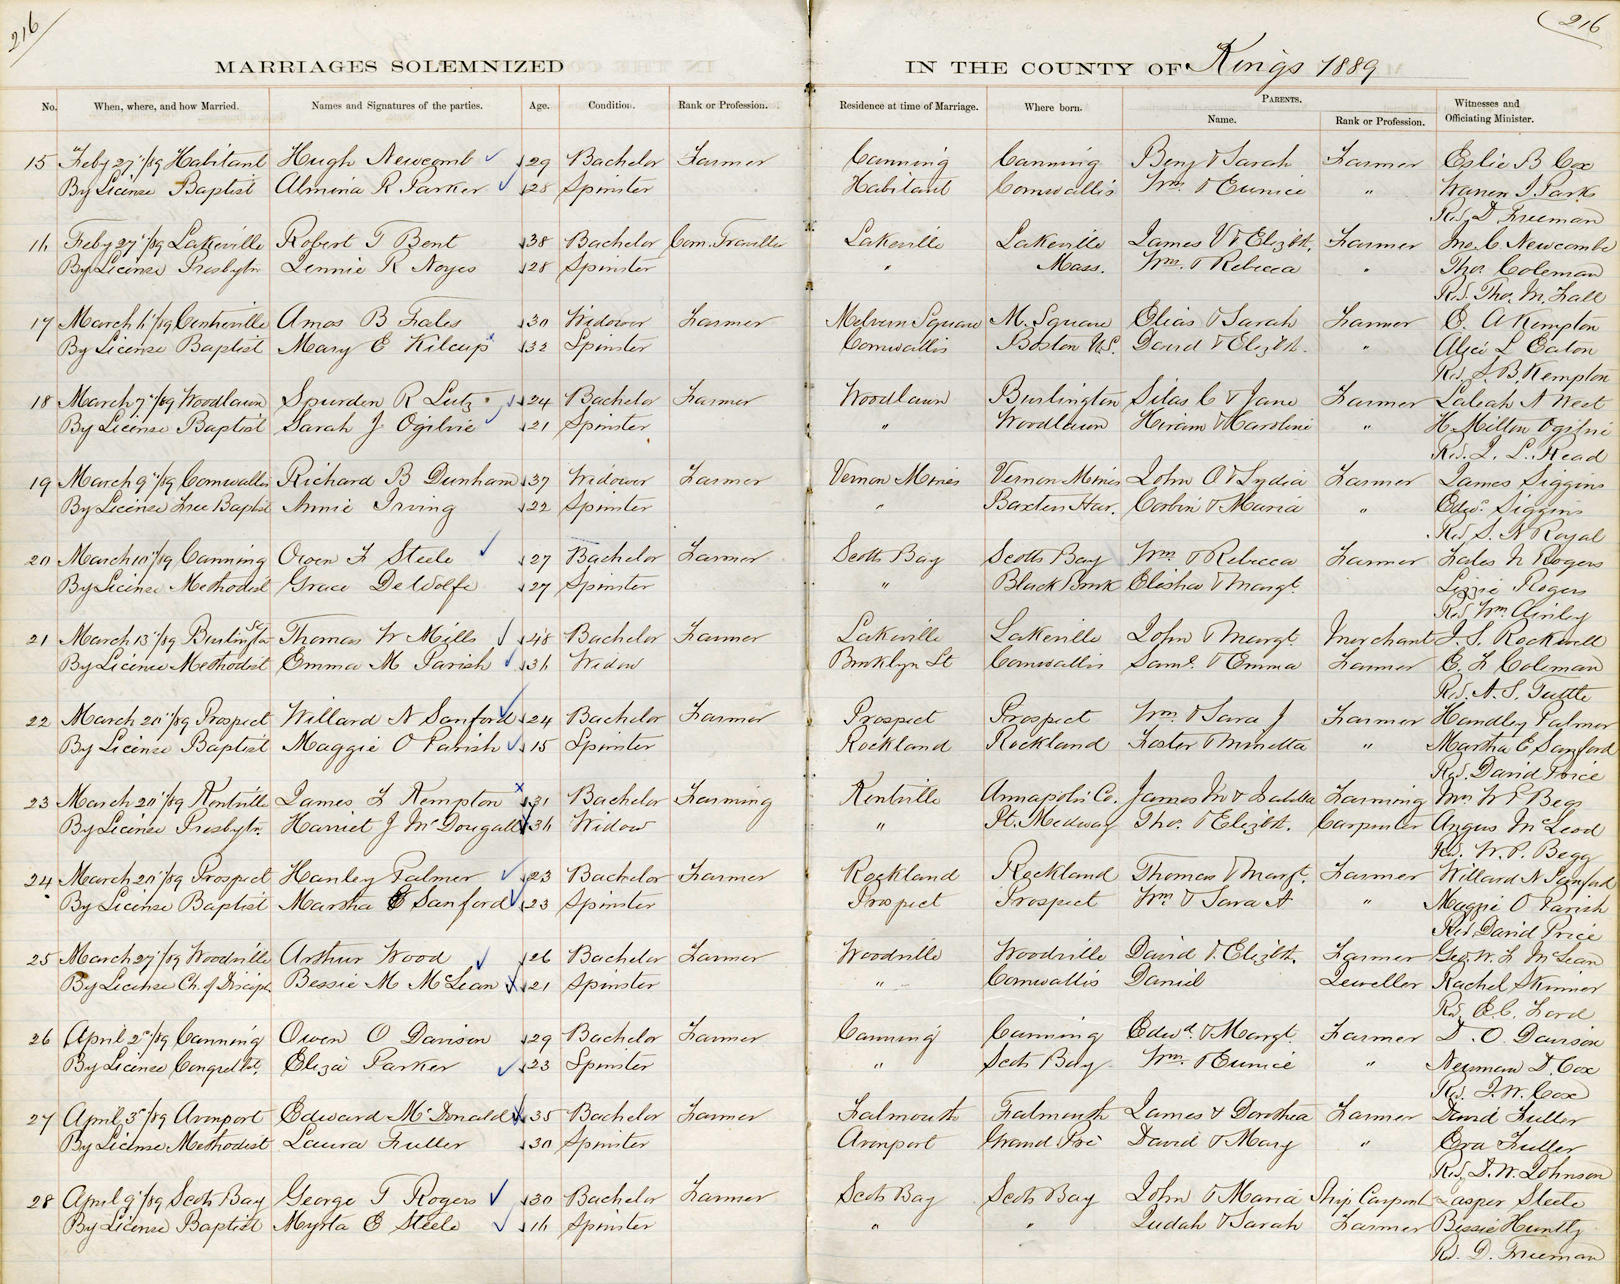 216
216
MARRIAGES SOLEMNIZED IN THE COUNTY OF Kings 1889
No. When, where, and how Married. Names and Signatures of the parties. Age. Condition. Rank or Profession. Residence at time of Marriage. Where born. PARENTS. Name. Rank or Profession. Witnesses and Officiating Minister.
15 Feby 27"/89 Habitant Hugh Newcomb 29 Bachelor Farmer Canning Canning Benj & Sarah Farmer Eslie B Cox
By License Baptist Almina R Parker 28 Spinster Habitant Cornwallis Wm & Eunice " Warren I Parks
Rd. D Freeman
16 Feby 27"/89 Lakeville Robert T Bent 38 Bachelor Com. Traveller Lakeville Lakeville James V & Elizbth. Farmer Jno. C. Newcombe
By License Presbytn Jennie R Noyes 28 Spinster " Mass. Wm. & Rebecca " Thos. Coleman
Rd. Thos. M. Fall
17 March 6"/89 Centreville Amos B Fales 30 Widower Farmer Melvern Square M. Square Elias & Sarah Farmer E. A Kempton
By License Baptist Mary E Kilcup 32 Spinster Cornwallis Boston U.S. David & Elizbth. " Alice L Eaton
Rd. S. B. Kempton
18 March 7"/89 Woodlawn Spurden R Lutz 24 Bachelor Farmer Woodlawn Burlington Silas C & Jane Farmer Laleah N West
By License Baptist Sarah J Ogilvie 21 Spinster " Woodlawn Hiram & Caroline " H Milton Ogilvie
Rd. J. L. Read
19 March 9"/89 Cornwallis Richard B Dunham 37 Widower Farmer Vernon Mines Vernon Mines John O & Lydia Farmer James Siggins
By License Free Baptist Annie Irving 22 Spinster " Baxters Har. Corbin & Maria " Edwd. Siggins
Rd S. N Royal
20 March 10"/89 Canning Owen F Steele 27 Bachelor Farmer Scotts Bay Scotts Bay Wm & Rebecca Farmer Fales N Rogers
By License Methodist Grace DeWolfe 27 Spinster " Black Rock Elisha & Margt. Lizzie Rogers
Rd. Wm. Ainley
21 March 13"/89 Burlington Thomas W Mills 48 Bachelor Farmer Lakeville Lakeville John & Margt. Merchant J. S. Rockwell
By License Methodist Emma M Parish 36 Widow Brooklyn St Cornwallis Saml. & Emma Farmer E. F Coleman
Rd. A. S. Tuttle
22 March 20"/89 Prospect Willard N Sanford 24 Bachelor Farmer Prospect Prospect Wm. & Sara J Farmer Handley Palmer
By License Baptist Maggie O Parish 15 Spinster Rockland Rockland Foster & Minetta " Martha E Sanford
Rd. David Price
23 March 20"/89 Kentville James F Kempton 31 Bachelor Farming Kentville Annapolis Co. James M & Isabella Farming Mrs W P Begg
By License Presbytn. Harriet J McDougall 36 Widow " Pt. Medway Thos. & Elizbth. Carpenter Angus McLeod
Rd. W. P. Begg
24 March 20"/89 Prospect Hanley Palmer 23 Bachelor Farmer Rockland Rockland Thomas & Margt. Farmer Willard N Sanford
By License Baptist Martha E Sanford 23 Spinster Prospect Prospect Wm. & Sara A " Maggie O Parish
Rd David Price
25 March 27"/89 Woodville Arthur Wood 26 Bachelor Farmer Woodville Woodville David & Elizbth. Farmer Geo. W. F McLean
By License Ch. of Discipl. Bessie M McLean 21 Spinster " Cornwallis Daniel Jeweller Rachel Skinner
Rd. E. C. Ford
26 April 2"/89 Canning Owen O Davison 29 Bachelor Farmer Canning Canning Edwd. & Margt Farmer D. O. Davison
By License Congretl. Eliza Parker 23 Spinster " Scots Bay Wm. & Eunice " Newman D. Cox
Rd. J. W. Cox
27 April 3"/89 Avonport Edward McDonald 35 Bachelor Farmer Falmouth Falmouth James & Dorothea Farmer David Fuller
By License Methodist Laura Fuller 30 Spinster Avonport Grand Pre David & Mary " Eva Fuller
Rd. D. W. Johnson
28 April 9"/89 Scots Bay George T Rogers 30 Bachelor Farmer Scots Bay Scots Bay John & Maria Ship Carpent Jasper Steele
By License Baptist Myrta E Steele 16 Spinster " " Judah & Sarah Farmer Bessie Huntly
Rd. D. Freeman